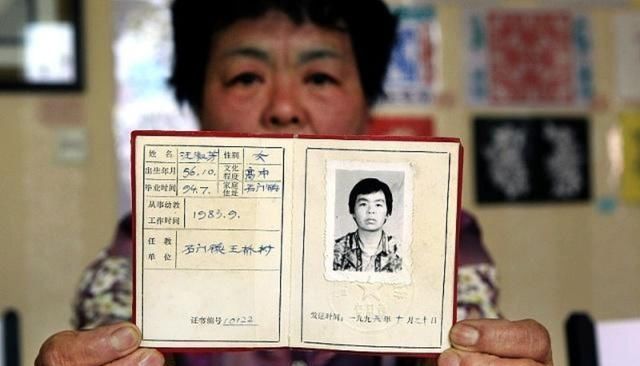 姓名 汪淑芳 性别 女
出生年月 56.10. 文化程度 高中
毕业时间 94.7. 家庭住址 石门镇
从事幼教工作时间 1983.9.
任教单位 石门镇王桥村
证书编号 10122
发证时间：一九九六年十月二十日